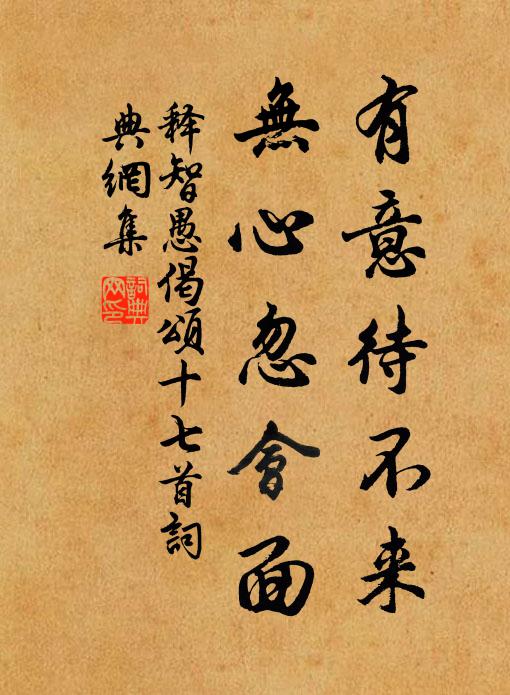 有意待不来
無心忽會面
释智愚偈頌十七首詞
典網集
詞典
网印